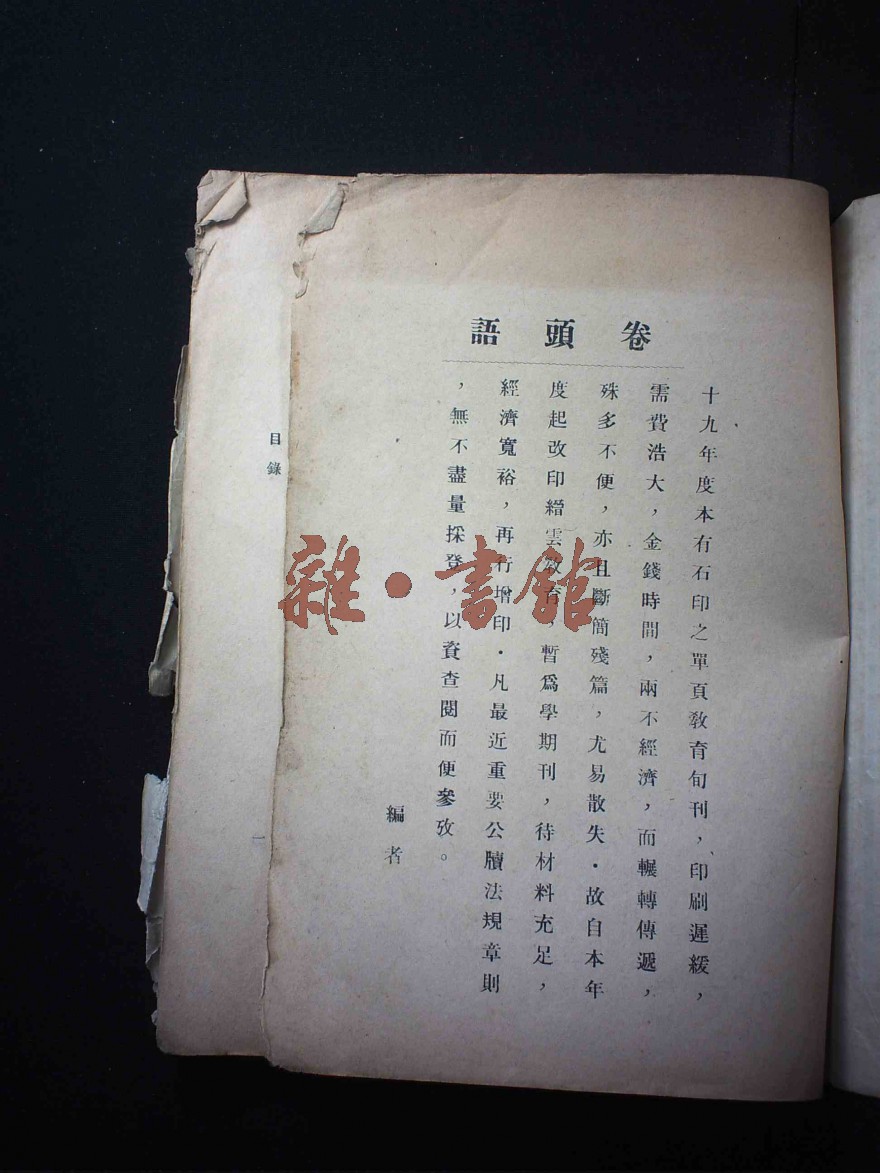 卷頭語
十九年度本有石印之單頁敎育旬刊，印刷遲緩，
需費浩大，金錢時間，兩不經濟，而輾轉傳遞，
殊多不便，亦且斷簡殘篇，尤易散失・故自本年
度起改印縉雲敎育，暫爲學期刊，待材料充足，
經濟寬裕，再行增印・凡最近重要公牘法規章則
，無不盡量採登，以資查閱而便參攷。
編者
目錄
一
雜・書館